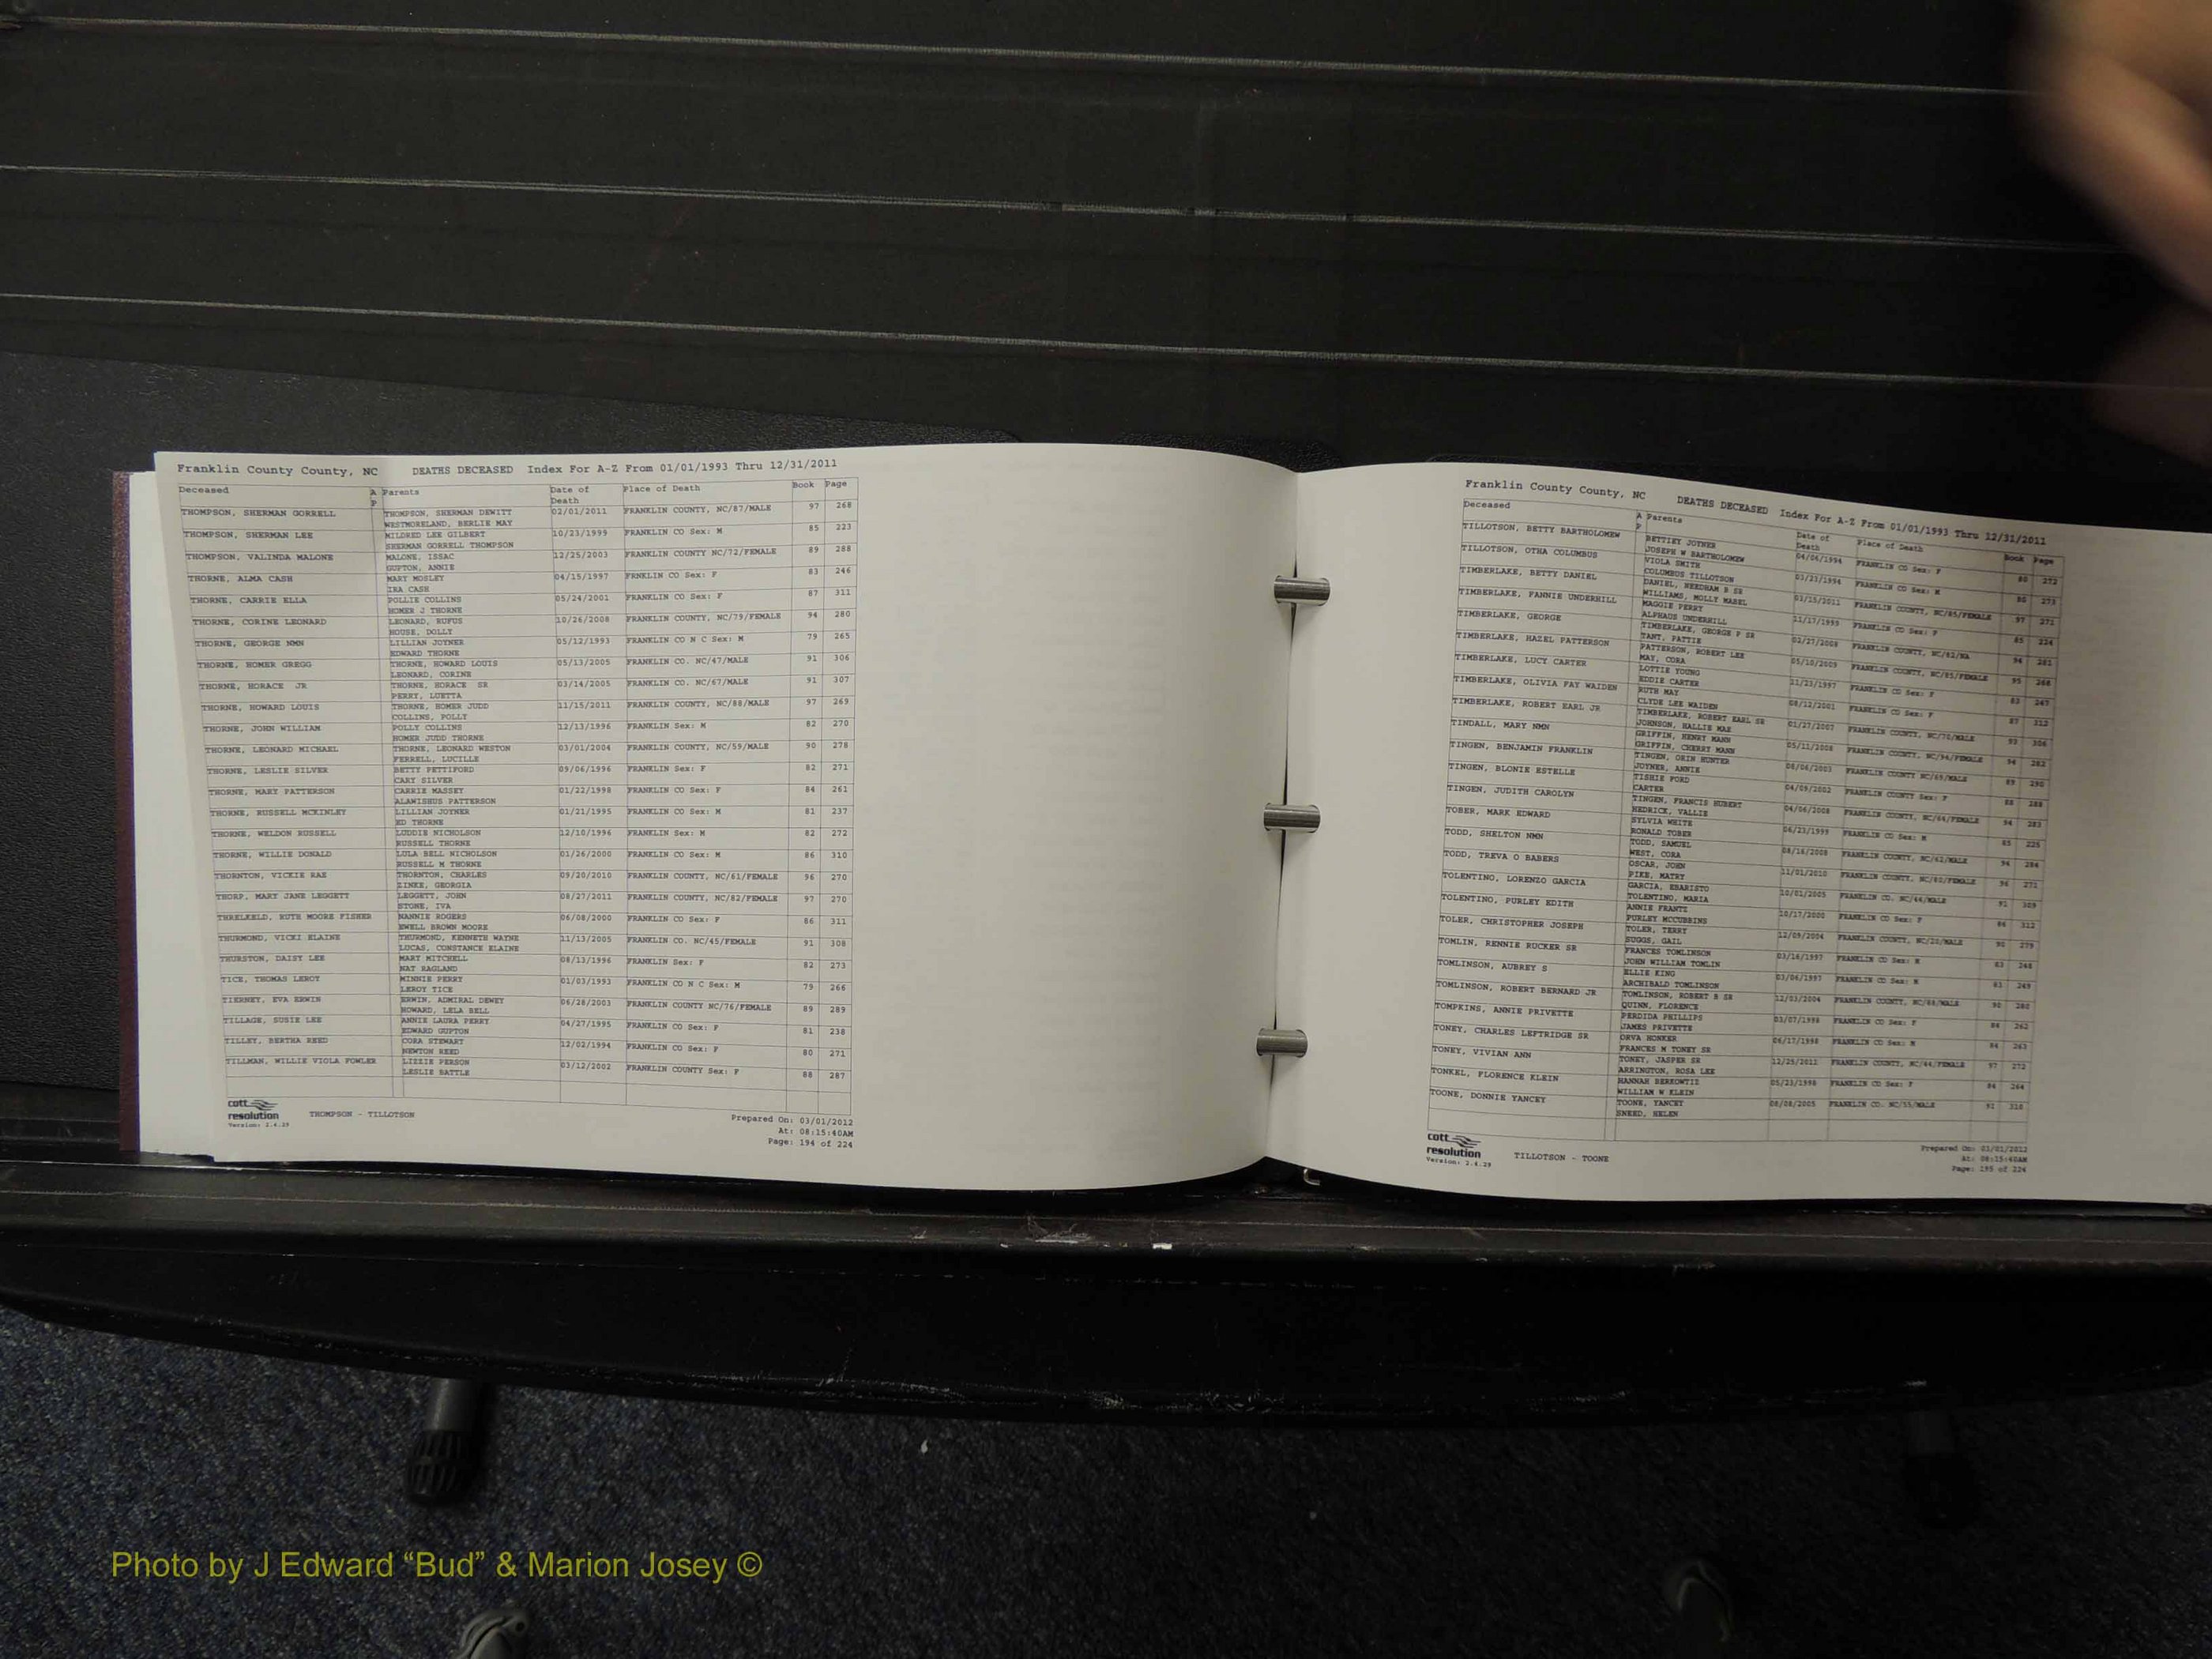 Franklin County County, NC DEATHS DECEASED Index For A-Z From 01/01/1993 Thru 12/31/2011
Deceased A P Parents Date of Death Place of Death Book Page
THOMPSON, SHERMAN GORRELL THOMPSON, SHERMAN DEWITT 02/01/2011 FRANKLIN COUNTY, NC/87/MALE 97 268
WESTMORELAND, BERLIE MAY
THOMPSON, SHERMAN LEE MILDRED LEE GILBERT 10/23/1999 FRANKLIN CO Sex: M 85 223
SHERMAN GORRELL THOMPSON
THOMPSON, VALINDA MALONE MALONE, ISSAC 12/25/2003 FRANKLIN COUNTY NC/72/FEMALE 89 288
GUPTON, ANNIE
THORNE, ALMA CASH MARY MOSLEY 04/15/1997 FRNKLIN CO Sex: F 83 246
IRA CASH
THORNE, CARRIE ELLA POLLIE COLLINS 05/24/2001 FRANKLIN CO Sex: F 87 311
HOMER J THORNE
THORNE, CORINE LEONARD LEONARD, RUFUS 10/26/2008 FRANKLIN COUNTY, NC/79/FEMALE 94 280
HOUSE, DOLLY
THORNE, GEORGE NMN LILLIAN JOYNER 05/12/1993 FRANKLIN CO N C Sex: M 79 265
EDWARD THORNE
THORNE, HOMER GREGG THORNE, HOWARD LOUIS 05/13/2005 FRANKLIN CO. NC/47/MALE 91 306
LEONARD, CORINE
THORNE, HORACE JR THORNE, HORACE SR 03/14/2005 FRANKLIN CO. NC/67/MALE 91 307
PERRY, LUETTA
THORNE, HOWARD LOUIS THORNE, HOMER JUDD 11/15/2011 FRANKLIN COUNTY, NC/88/MALE 97 269
COLLINS, POLLY
THORNE, JOHN WILLIAM POLLY COLLINS 12/13/1996 FRANKLIN Sex: M 82 270
HOMER JUDD THORNE
THORNE, LEONARD MICHAEL THORNE, LEONARD WESTON 03/01/2004 FRANKLIN COUNTY, NC/59/MALE 90 278
FERRELL, LUCILLE
THORNE, LESLIE SILVER BETTY PETTIFORD 09/06/1996 FRANKLIN Sex: F 82 271
CARY SILVER
THORNE, MARY PATTERSON CARRIE MASSEY 01/22/1998 FRANKLIN CO Sex: F 84 261
ALAWISHUS PATTERSON
THORNE, RUSSELL MCKINLEY LILLIAN JOYNER 01/21/1995 FRANKLIN CO Sex: M 81 237
ED THORNE
THORNE, WELDON RUSSELL LUDDIE NICHOLSON 12/10/1996 FRANKLIN Sex: M 82 272
RUSSELL THORNE
THORNE, WILLIE DONALD LULA BELL NICHOLSON 01/26/2000 FRANKLIN CO Sex: M 86 310
RUSSELL M THORNE
THORNTON, VICKIE RAE THORNTON, CHARLES 09/20/2010 FRANKLIN COUNTY, NC/61/FEMALE 96 270
ZINKE, GEORGIA
THORP, MARY JANE LEGGETT LEGGETT, JOHN 08/27/2011 FRANKLIN COUNTY, NC/82/FEMALE 97 270
STONE, IVA
THRELKELD, RUTH MOORE FISHER NANNIE ROGERS 06/08/2000 FRANKLIN CO Sex: F 86 311
EWELL BROWN MOORE
THURMOND, VICKI ELAINE THURMOND, KENNETH WAYNE 11/13/2005 FRANKLIN CO. NC/45/FEMALE 91 308
LUCAS, CONSTANCE ELAINE
THURSTON, DAISY LEE MARY MITCHELL 08/13/1996 FRANKLIN Sex: F 82 273
NAT RAGLAND
TICE, THOMAS LEROY MINNIE PERRY 01/03/1993 FRANKLIN CO N C Sex: M 79 266
LEROY TICE
TIERNEY, EVA ERWIN ERWIN, ADMIRAL DEWEY 06/28/2003 FRANKLIN COUNTY NC/76/FEMALE 89 289
HOWARD, LELA BELL
TILLAGE, SUSIE LEE ANNIE LAURA PERRY 04/27/1995 FRANKLIN CO Sex: F 81 238
EDWARD GUPTON
TILLEY, BERTHA REED CORA STEWART 12/02/1994 FRANKLIN CO Sex: F 80 271
NEWTON REED
TILLMAN, WILLIE VIOLA FOWLER LIZZIE PERSON 03/12/2002 FRANKLIN COUNTY Sex: F 88 287
LESLIE BATTLE
cott
resolution
Version: 2.4.29
THOMPSON - TILLOTSON
Prepared On: 03/01/2012
At: 08:15:40AM
Page: 194 of 224
Franklin County County, NC DEATHS DECEASED Index For A-Z From 01/01/1993 Thru 12/31/2011
Deceased A P Parents Date of Death Place of Death Book Page
TILLOTSON, BETTY BARTHOLOMEW BETTIEY JOYNER 04/06/1994 FRANKLIN CO Sex: F 80 272
JOSEPH W BARTHOLOMEW
TILLOTSON, OTHA COLUMBUS VIOLA SMITH 03/23/1994 FRANKLIN CO Sex: M 80 273
COLUMBUS TILLOTSON
TIMBERLAKE, BETTY DANIEL DANIEL, NEEDHAM B SR 03/15/2011 FRANKLIN COUNTY, NC/85/FEMALE 97 271
WILLIAMS, MOLLY MABEL
TIMBERLAKE, FANNIE UNDERHILL MAGGIE PERRY 11/17/1999 FRANKLIN CO Sex: F 85 224
ALPHAUS UNDERHILL
TIMBERLAKE, GEORGE TIMBERLAKE, GEORGE P SR 02/27/2008 FRANKLIN COUNTY, NC/82/NA 94 281
TANT, PATTIE
TIMBERLAKE, HAZEL PATTERSON PATTERSON, ROBERT LEE 05/10/2009 FRANKLIN COUNTY, NC/85/FEMALE 95 268
MAY, CORA
TIMBERLAKE, LUCY CARTER LOTTIE YOUNG 11/23/1997 FRANKLIN CO Sex: F 83 247
EDDIE CARTER
TIMBERLAKE, OLIVIA FAY WAIDEN RUTH MAY 08/12/2001 FRANKLIN CO Sex: F 87 312
CLYDE LEE WAIDEN
TIMBERLAKE, ROBERT EARL JR TIMBERLAKE, ROBERT EARL SR 01/27/2007 FRANKLIN COUNTY, NC/70/MALE 93 306
JOHNSON, HALLIE MAE
TINDALL, MARY NMN GRIFFIN, HENRY MANN 05/11/2008 FRANKLIN COUNTY, NC/94/FEMALE 94 282
GRIFFIN, CHERRY MANN
TINGEN, BENJAMIN FRANKLIN TINGEN, ORIN HUNTER 08/06/2003 FRANKLIN COUNTY NC/69/MALE 89 290
JOYNER, ANNIE
TINGEN, BLONIE ESTELLE TISHIE FORD 04/09/2002 FRANKLIN CO Sex: F 88 288
CARTER
TINGEN, JUDITH CAROLYN TINGEN, FRANCIS HUBERT 04/06/2008 FRANKLIN COUNTY, NC/64/FEMALE 94 283
HEDRICK, VALLIE
TOBER, MARK EDWARD SYLVIA WHITE 06/23/1999 FRANKLIN CO Sex: M 85 225
RONALD TOBER
TODD, SHELTON NMN TODD, SAMUEL 08/16/2008 FRANKLIN COUNTY, NC/62/MALE 94 284
WEST, CORA
TODD, TREVA O BABERS OSCAR, JOHN 11/01/2010 FRANKLIN COUNTY, NC/82/FEMALE 96 271
PIKE, MATRY
TOLENTINO, LORENZO GARCIA GARCIA, EBARISTO 10/01/2005 FRANKLIN CO. NC/44/MALE 91 309
TOLENTINO, MARIA
TOLENTINO, PURLEY EDITH ANNIE FRANTZ 10/17/2000 FRANKLIN CO Sex: F 86 312
PURLEY MCCUBBINS
TOLER, CHRISTOPHER JOSEPH TOLER, TERRY 12/09/2004 FRANKLIN COUNTY, NC/20/MALE 90 279
SUGGS, GAIL
TOMLIN, RENNIE RUCKER SR FRANCES TOMLINSON 03/16/1997 FRANKLIN CO Sex: M 83 248
JOHN WILLIAM TOMLIN
TOMLINSON, AUBREY S ELLIE KING 03/06/1997 FRANKLIN CO Sex: M 83 249
ARCHIBALD TOMLINSON
TOMLINSON, ROBERT BERNARD JR TOMLINSON, ROBERT B SR 12/03/2004 FRANKLIN COUNTY, NC/88/MALE 90 280
QUINN, FLORENCE
TOMPKINS, ANNIE PRIVETTE PERDIDA PHILLIPS 03/07/1998 FRANKLIN CO Sex: F 84 262
JAMES PRIVETTE
TONEY, CHARLES LEFTRIDGE SR ORVA HONKER 06/17/1998 FRANKLIN CO Sex: M 84 263
FRANCES M TONEY SR
TONEY, VIVIAN ANN TONEY, JASPER SR 12/25/2011 FRANKLIN COUNTY, NC/44/FEMALE 97 272
ARRINGTON, ROSA LEE
TONKEL, FLORENCE KLEIN HANNAH BERKOWTIZ 05/23/1998 FRANKLIN CO Sex: F 84 264
WILLIAM W KLEIN
TOONE, DONNIE YANCEY TOONE, YANCEY 08/08/2005 FRANKLIN CO. NC/55/MALE 91 310
SNEED, HELEN
cott
resolution
Version: 2.4.29
TILLOTSON - TOONE
Prepared On: 03/01/2012
At: 08:15:40AM
Page: 195 of 224
Photo by J Edward “Bud” & Marion Josey ©